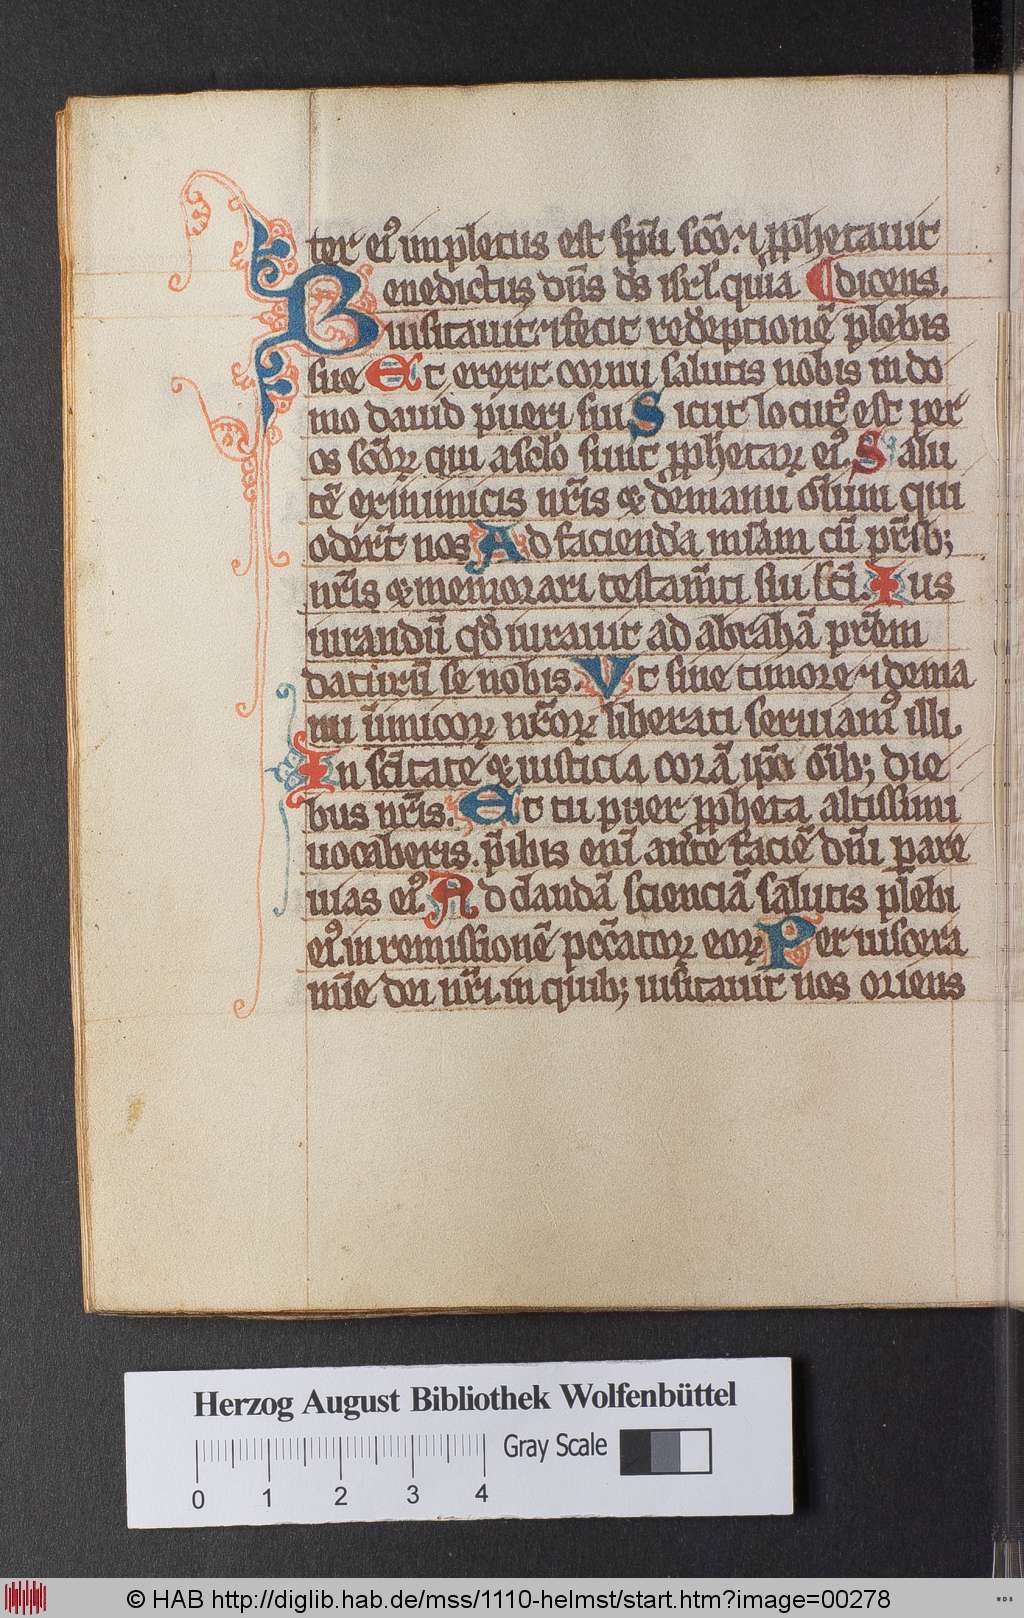 ter eiꝰ impletus est spū sc̄o. ⁊ ꝓphetauit
Benedictus dn̄s ds̄ isrl̄. quia ¶ dicens.
uisitauit. ⁊ fecit redēptionē plebis
sue Et erexit cornu salutis nobis in do
mo dauid pueri sui Sicut locutꝰ est per
os sc̄oꝝ qui a sclo sunt ꝓphetaꝝ eiꝰ. Salu
tē ex inimicis nr̄is ⁊ de manu om̄ium qui
oder̄t nos Ad faciendā mīam cū pr̄ib;
nr̄is ⁊ memorari testam̄ti sui sc̄i. Ius
iurandū qd̄ iurauit ad abrahā pr̄em
daturū se nobis. Vt sine timore ⁊ de ma
nu īimicoꝝ nr̄oꝝ liberati seruiamꝰ illi.
In sc̄itate ⁊ iusticia corā ip̄o om̄ib; die
bus nr̄is. Et tu puer ꝓpheta altissimi
uocaberis. p̄ibis enī ante faciē dn̄i parē
uias eiꝰ. Ad dandā scienciā salutis plebi
eiꝰ in remissionē pcc̄atoꝝ eoꝝ Per uiscera
mīe dei nr̄i. in quib; uisitauit nos oriens
Herzog August Bibliothek Wolfenbüttel
Gray Scale
0 1 2 3 4
© HAB http://diglib.hab.de/mss/1110-helmst/start.htm?image=00278